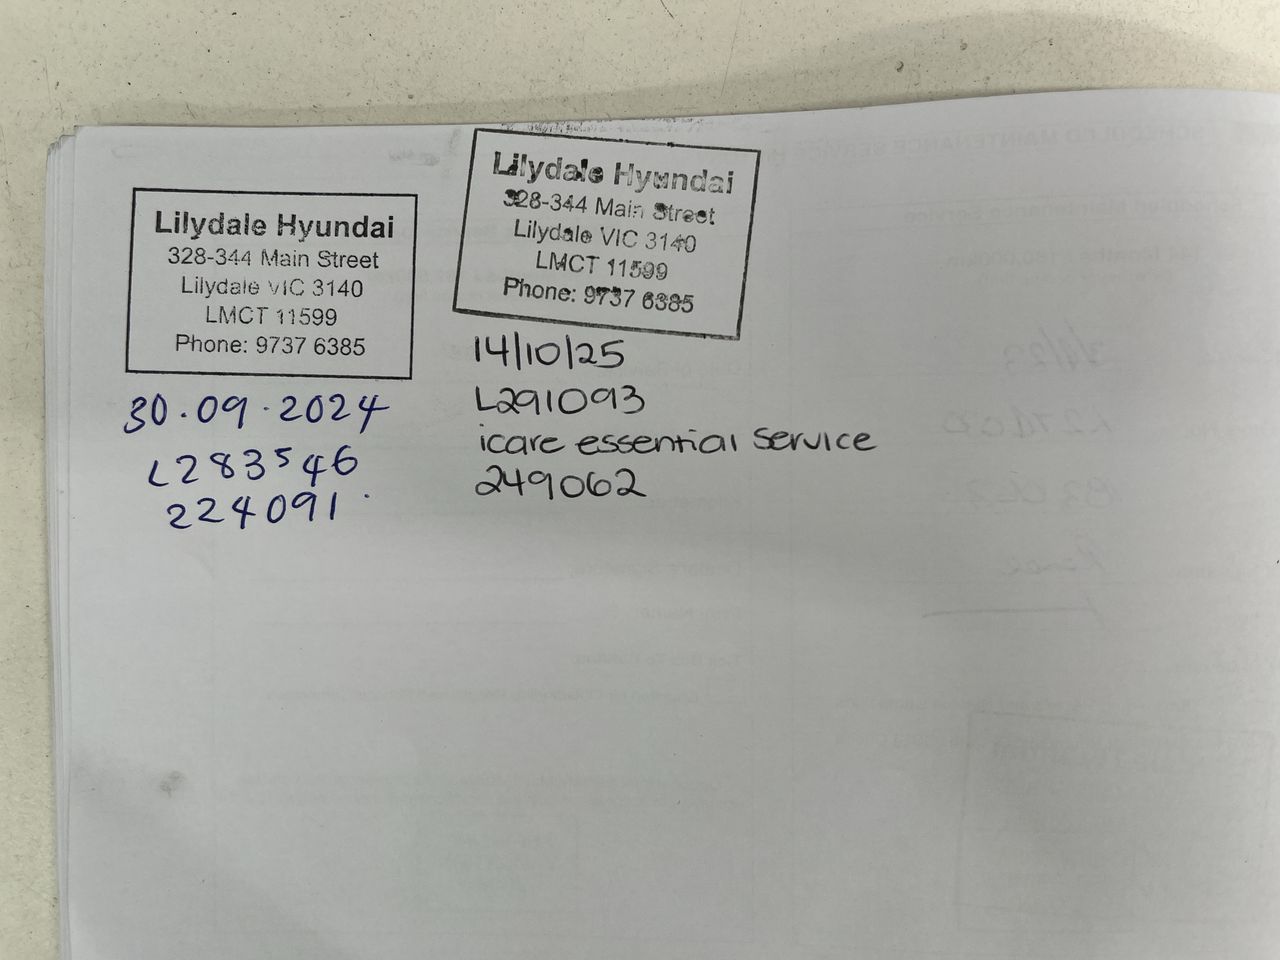 Lilydale Hyundai
328-344 Main Street
Lilydale VIC 3140
LMCT 11599
Phone: 9737 6385
30.09.2024
L283546
224091
Lilydale Hyundai
328-344 Main Street
Lilydale VIC 3140
LMCT 11599
Phone: 9737 6385
14/10/25
L291093
icare essential service
249062